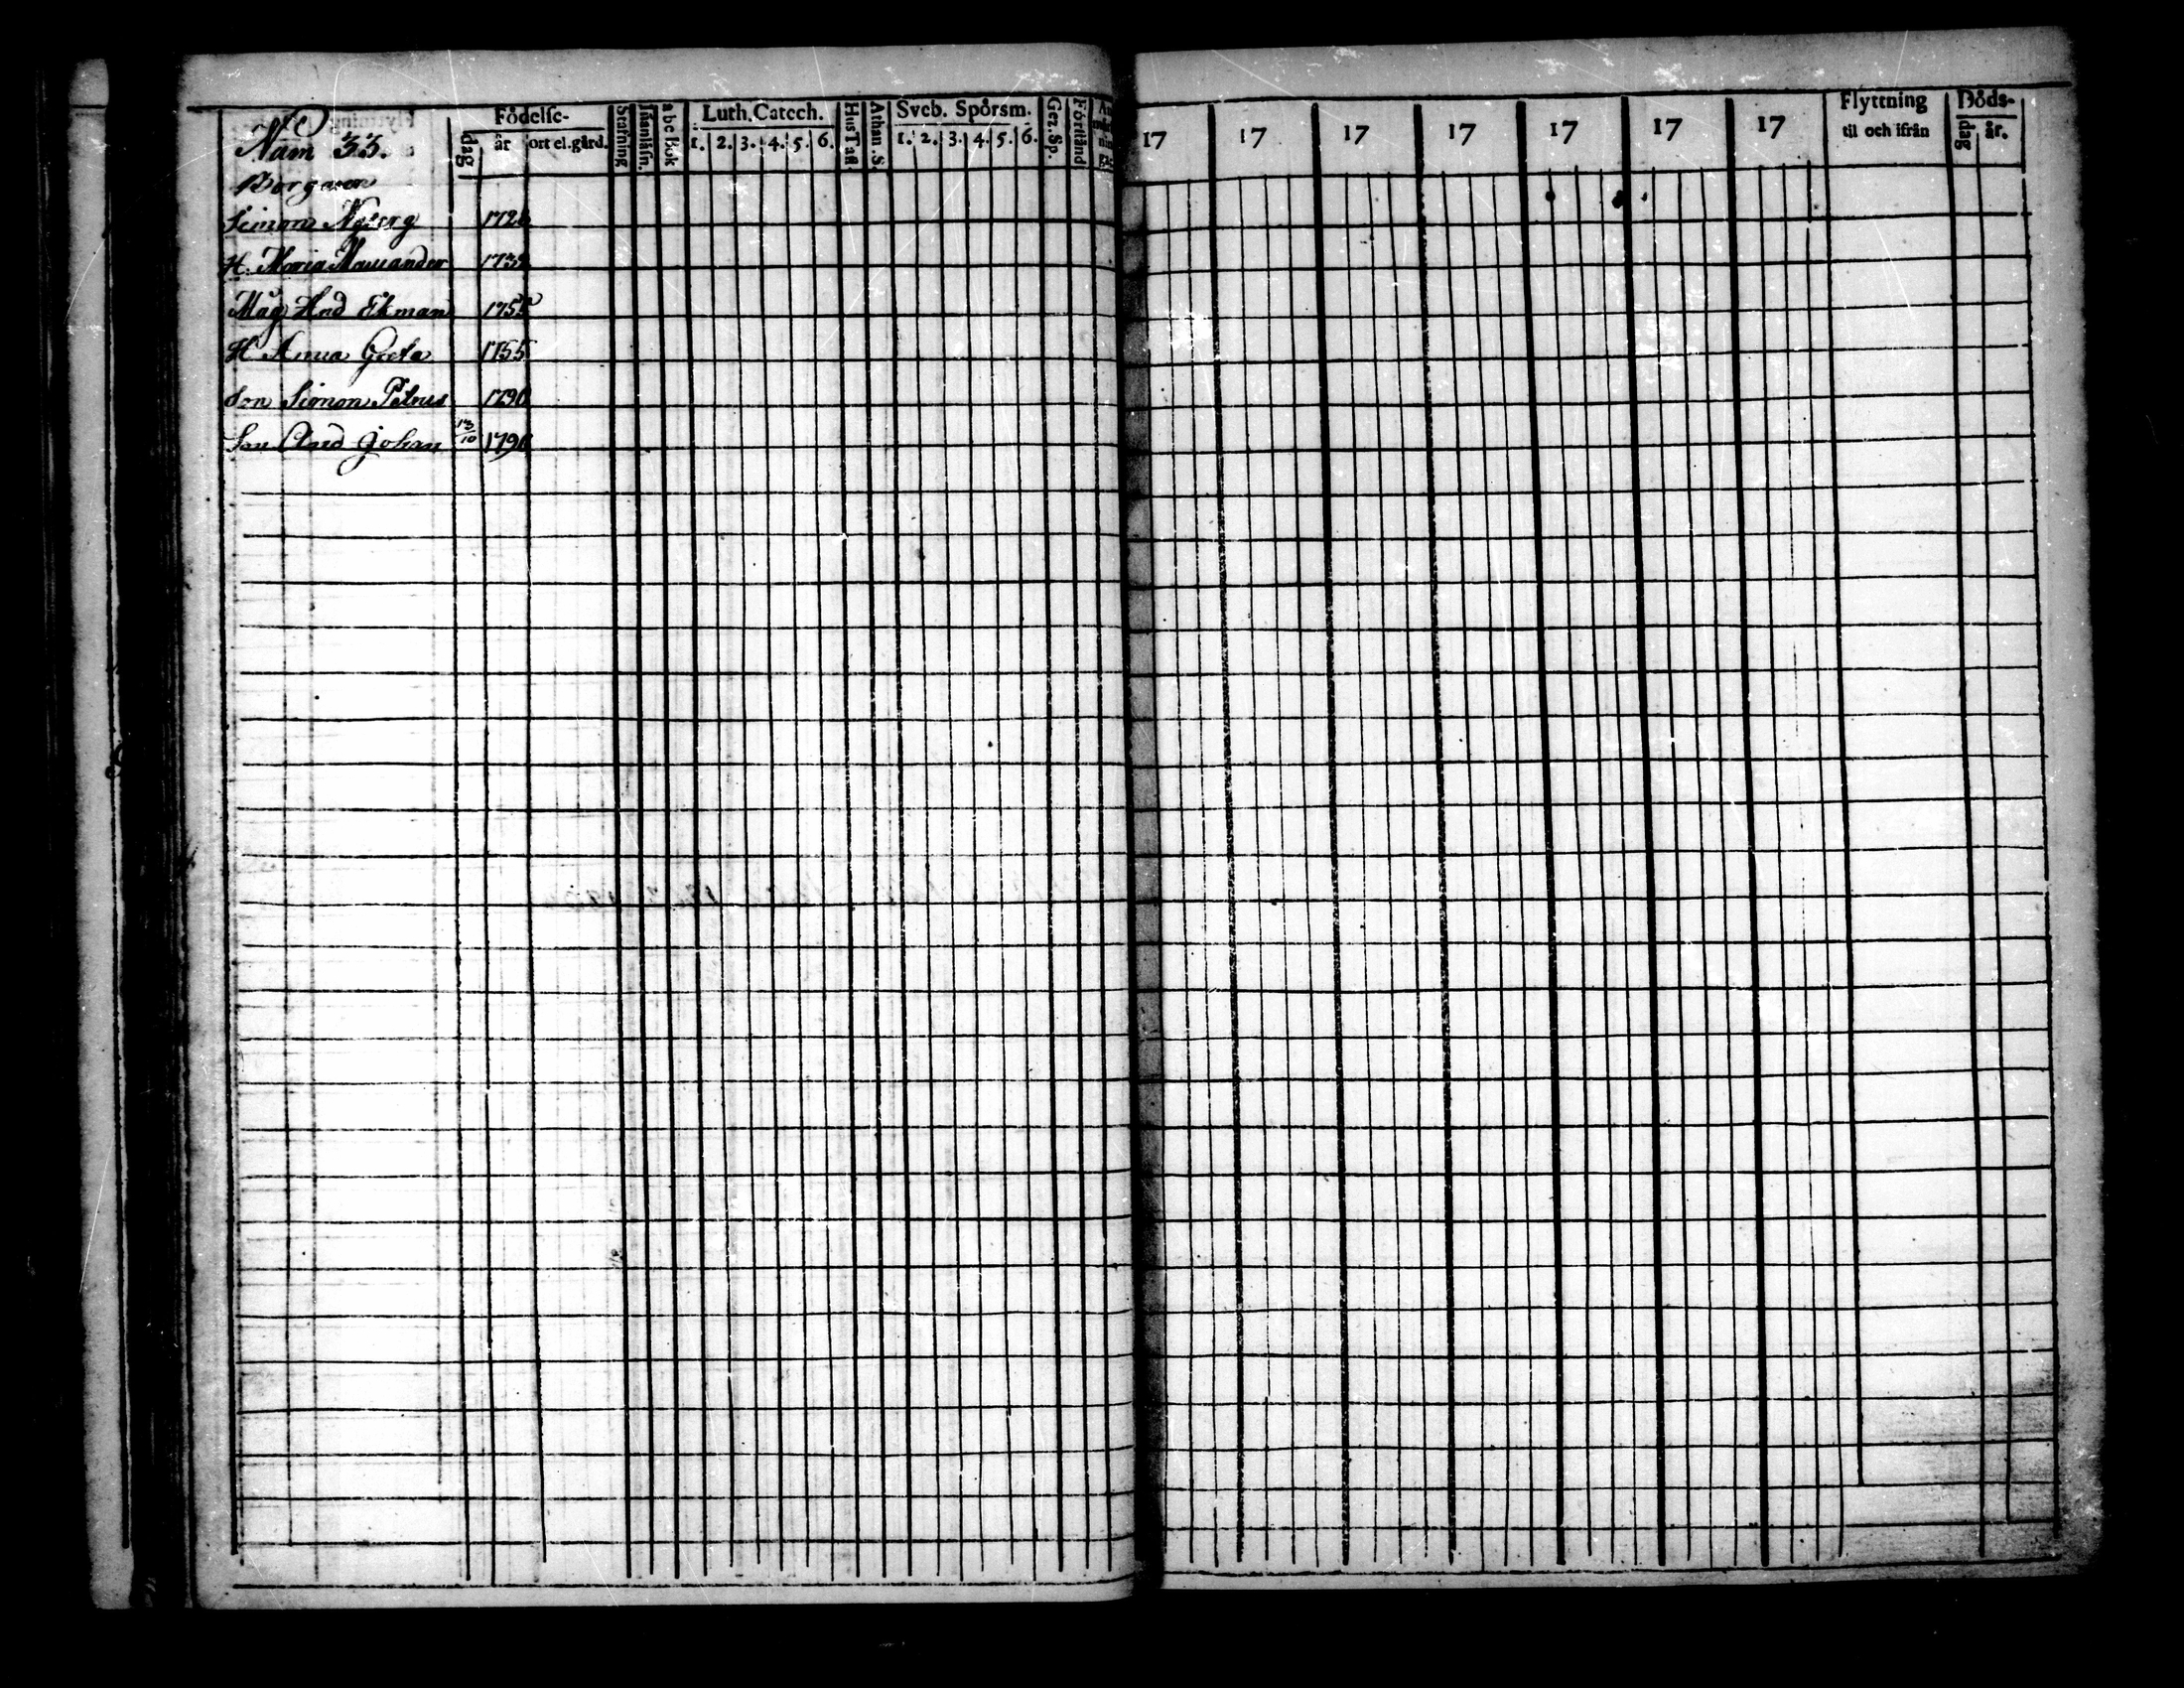 Num 33.
Födelse-
dag
år
ort el. gård.
Stafning
Innanläsn.
abc Bok
Luth. Catech.
1. 2. 3. 4. 5. 6.
Hus Tafl.
Athan. S.
Sveb. Spörsm.
1. 2. 3. 4. 5. 6.
Gez. Sp.
Förstånd
17 17 17 17 17 17 17
Flyttning
til och ifrån
Döds-
dag
år.
Borgaren
Simon Nyberg 1726
H. Maria 1732
Måg And Ekman 1755
H Anna Greta 1755
Son Simon Petrus 1790
Son And Johan 13/10 1791